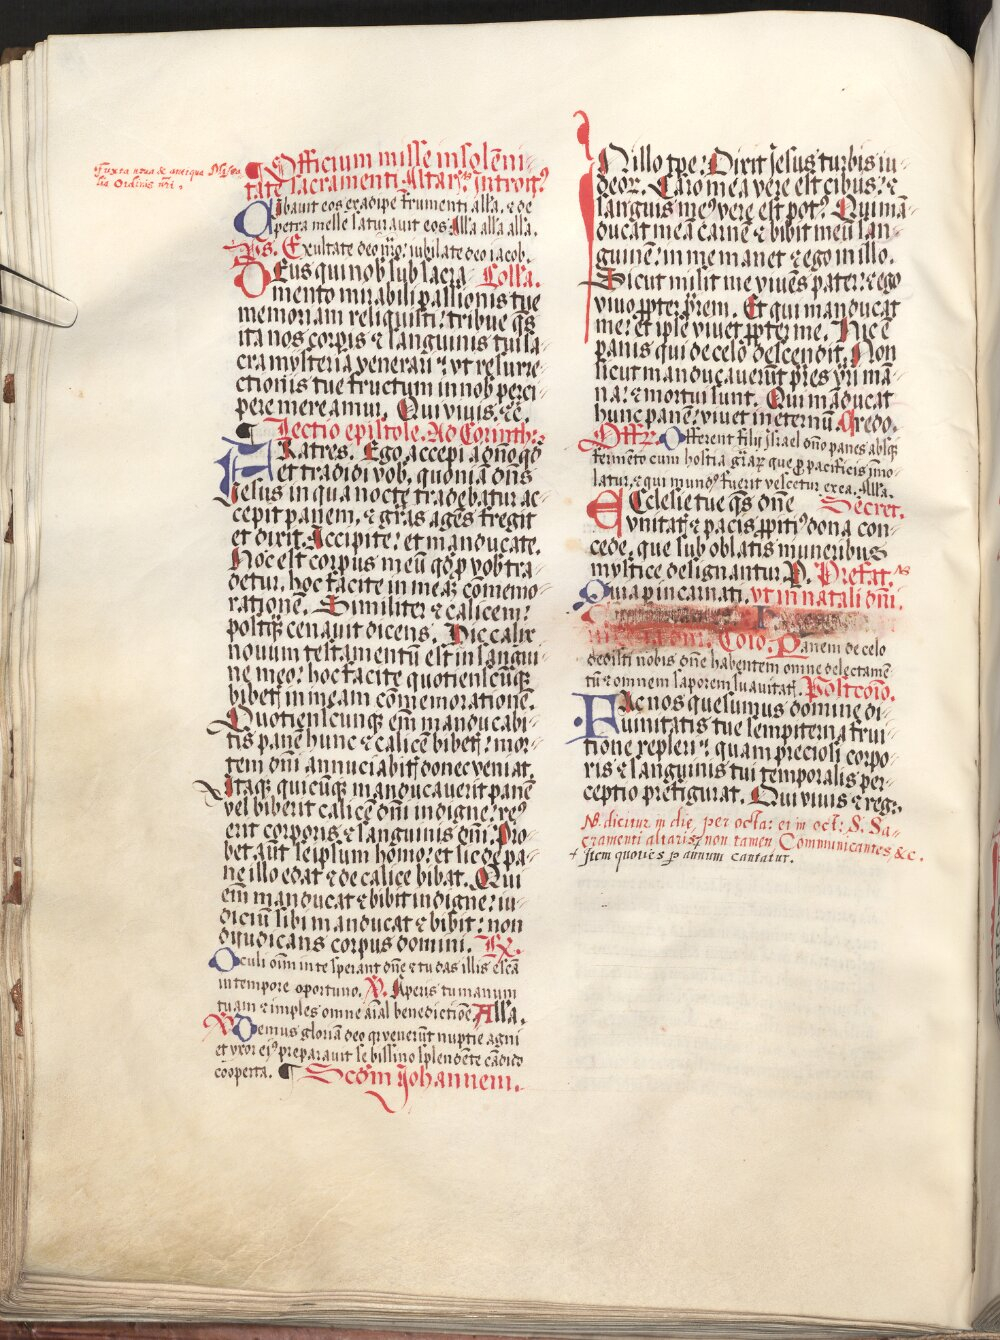 Juxta noua & antiqua Missa
lia Ordinis nr̄i.
¶ Officium misse in solēni-
tate sacramenti Altarꝰ. Introitꝰ
Cibauit eos ex adipe frumenti all'a. ⁊ de
petra melle saturauit eos All'a all'a all'a.
Ps. Exultate deo nr̄o: iubilate deo iacob.
DEus qui nob̄ sub sacra- Coll'a.
mento mirabili passionis tue
memoriam reliquisti: tribue q̄s
ita nos corpis ⁊ sanguinis tui sa-
cra mysteria venerari: vt resurre-
ctionis tue fructum in nob̄ perci-
pere mereamur. Qui viuis. ⁊c̄.
¶ Lectio epistole. Ad Corinth:
FRatres. Ego accepi a dn̄o qd̄
et tradidi vob. quoniā dn̄s
Jesus in qua nocte tradebatur ac-
cepit panem. ⁊ gr̄as agēs fregit
et dixit. Accipite: et manducate.
Hoc est corpus meū qd̄ p vob tra-
detur. hoc facite in meaꝫ cōmemo-
rationē. Similiter ⁊ calicem:
postq̄ꝫ cenauit dicens. Hic calix
nouum testamentū est in sangui-
ne meo: hoc facite quotienscūqꝫ
bibetꝭ in meam cōmemorationē.
Quotienscunqꝫ em̄ manducabi-
tis panē hunc ⁊ calicē bibetꝭ: mor-
tem dn̄i annūciabitꝭ donec veniat.
Itaqꝫ quicūqꝫ manducauerit panē
vel biberit calicē dn̄i indigne: reꝰ
erit corporis ⁊ sanguinis dn̄i. Pro
bet aūt seipsum homo: et sic de pa-
ne illo edat ⁊ de calice bibat. Qui
em̄ manducat ⁊ bibit indigne: iu-
diciū sibi manducat ⁊ bibit: non
dijudicans corpus domini. Rx.
Oculi oīm in te sperant dn̄e ⁊ tu das illis escā
in tempore oportuno. V. Aperis tu manum
tuam ⁊ imples omne aīal benedictiōe. All'a.
V. Demus gloriā deo qr venerūt nuptie agni
et vxor eiꝰ preparauit se bissino splendēte cādido
cooperta. ¶ Scd̄m Johannem.
IN illo tp̄e: Dixit Jesus turbis iu-
deoꝝ. Caro mea vere est cibus: ⁊
sanguis meꝰ vere est potꝰ. Qui mā-
ducat meā carnē ⁊ bibit meū san-
guinē: in me manet ⁊ ego in illo.
Sicut misit me viuēs pater: ⁊ ego
viuo ꝓpter pr̄em. Et qui manducat
me: et ipse viuet ꝓpter me. Hic ē
panis qui de celo descendit. Non
sicut manducauerūt pr̄es vr̄i mā-
na: ⁊ mortui sunt. Qui māducat
hunc panē: viuet in eternū. Credo.
Offr. Offerent filij Israel dn̄o panes absqꝫ
fermēto cum hostia gr̄aꝝ que ꝓ pacificis īmo-
latur. ⁊ qui mundꝰ fuerit vescetur ex ea. All'a.
ECclesie tue q̄s dn̄e Secret.
vnitatꝭ ⁊ pacis ꝓpitiꝰ dona con-
cede. que sub oblatis muneribus
mystice designantur. P. Prefat.
Quia p incarnati. vt in natali dn̄i.
Cōio. Panem de celo
dedisti nobis dn̄e habentem omne delectamē-
tū ⁊ omnem saporem suauitatꝭ. Postcōio.
FAc nos quesumus domine di-
uinitatis tue sempiterna frui-
tione repleri: quam preciosi corpo-
ris ⁊ sanguinis tui temporalis per-
ceptio prefigurat. Qui viuis ⁊ reg:
Nᵃ. dicitur in die, per octa: et in oct: S. Sa-
cramenti altaris, non tamen Communicantes, &c.
+ Item quoties p annum cantatur.